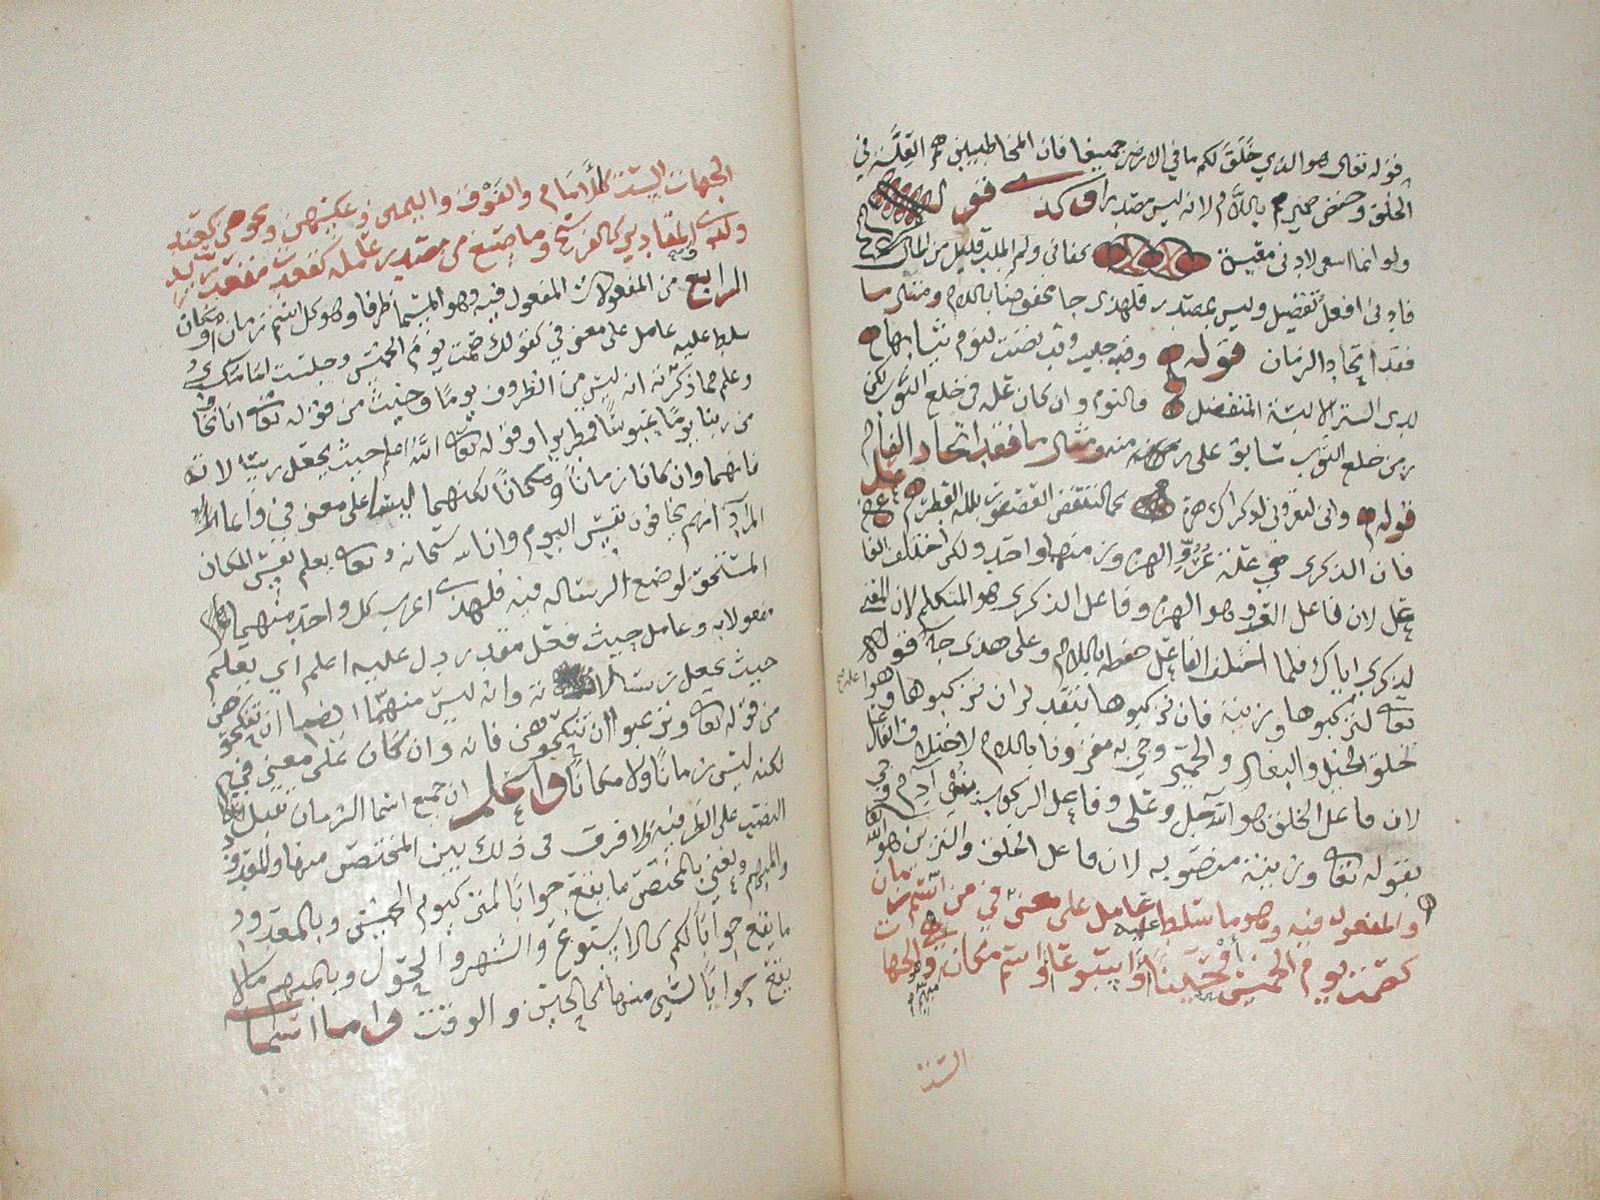 قوله تعالى هو الذي خَلَقَ لكم ما في الارض جميعا فان المخاطبين هم العِلَّة في
الخلق وخفض ضميرهم باللام لانه ليس مصدرا وكذ قول
ولو انما اسعى لادنى معيشة كفاني ولم اطلب قليل من المال
فادنى افعل تفضيل وليس بمصدر فلهذا جا مخفوضا باللام ومثال ما
فقد اتحاد الزمان قوله فجيت وقد نضت لنوم ثيابها
لدى الستر الا لبسة المتفضل فالنوم وان كان علة في خلع الثوب لكن
زمن خلع الثوب سابق على زمنه ومثال ما فقد اتحاد الفاعل
قوله واني لتعروني لذكراك هزة كما انتفض العصفور بلله القطر
فان الذكرى هي علة عُرُوّ الهزة وزمنهما واحد ولكن اختلف الفا
عل لان فاعل العرو هو الهزة وفاعل الذكرى هو المتكلم لان المعنى
لذكري اياك فلما اختلف الفاعل خفضه باللام وعلى هذا جا قوله
تعالى لتركبوها وزينة فان تركبوها بتقدير لان تركبوها وهو علة
لخلق الخيل والبغال والحمير وجي به مقرونا باللام لاختلاف الفاعل
لان فاعل الخلق هو الله جل وعلى وفاعل الركوب بنوا آدم وجي
بقوله تعالى وزينة منصوبه لان فاعل الخلق والتزين هو الله
والمفعول فيه وهو ما سلط عليه عامل على معنى في من اسم زمان
كصمت يوم الخميس أو حيناً أو اسبوعا أو اسم مكان وهو الجهات
مبهم
الست
الجهات الست كالأمَام والفَوْق واليمين وعكسهن ونحوهن كعند
ولدى والمقادير كالفرسخ وما صيغ من مصدر عامله كقعدت مقعد زيد
الرابع من المفعولات المفعول فيه وهو المسمى ظرفا وهو كل اسم زمان او مكان
سلط عليه عامل على معنى في كقولك صمت يوم الخميس وجلست امامك
وعلم مما ذكرته انه ليس من الظروف يوما وحيث من قوله تعالى انا نخاف
من ربنا يومًا عبوسًا قمطريرا وقوله تعالى الله اعلم حيث يجعل رسالاته
فانهما وان كانا زماناً ومكاناً لكنهما ليسا على معنى في وانما
المراد انهم يخافون نفس اليوم وان الله سبحانه وتعالى يعلم نفس المكان
المستحق لوضع الرساله فيه فلهذا اعرب كل واحد منهما
مفعولا به وعامل حيث فعل مقدر دل عليه اعلم اي يعلم
حيث يجعل رسالاته وانه ليس منهما ايضا ان تنكحوهن
من قوله تعالى وترغبون ان تنكحوهن فانه وان كان على معنى في
لكنه ليس زماناً ولا مكاناً واعلم ان جميع اسما الزمان تقبل
النصب على الظرفيه ولا فرق في ذلك بين المختص منها والمعدود
والمبهم ونعني بالمختص ما يقع جواباً لمتى كيوم الخميس وبالمعدود
ما يقع جواباً لكم كالاسبوع والشهر والحول وبالمبهم ما لا
يقع جواباً لشي منها كالحين والوقت واما اسما